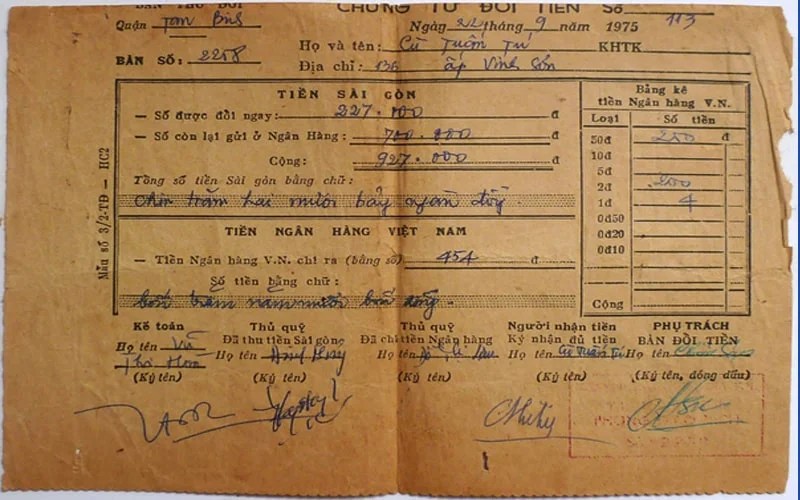 BAN THU ĐỔI CHỨNG TỪ ĐỔI TIỀN Số 113
Quận Tân Bình Ngày 22 tháng 9 năm 1975
Họ và tên: Cù Tuấn Tú KHTK
BÀN SỐ: 2258 Địa chỉ: 136 ấp Vinh Sơn
TIỀN SÀI GÒN
— Số được đổi ngay: 227.000 đ
— Số còn lại gửi ở Ngân Hàng: 700.000 đ
Cộng: 927.000 đ
Tổng số tiền Sài gòn bằng chữ:
Chín trăm hai mươi bảy ngàn đồng.
TIỀN NGÂN HÀNG VIỆT NAM
— Tiền Ngân hàng V.N. chi ra (bằng số) 454 đ
Số tiền bằng chữ:
bốn trăm năm mươi bốn đồng.
Bảng kê
tiền Ngân hàng V.N.
Loại Số tiền
50đ 250 đ
10đ
5đ
2đ 200
1đ 4
0đ50
0đ20
0đ10
Cộng
Mẫu số 3/2-TĐ — HC2
Kế toán
Họ tên Vũ
Thị Hoa
(Ký tên)
Thủ quỹ
Đã thu tiền Sài gòn
Họ tên
(Ký tên)
Thủ quỹ
Đã chi tiền Ngân hàng
Họ tên
(Ký tên)
Người nhận tiền
Ký nhận đủ tiền
Họ tên Cù Tuấn Tú
(Ký tên)
PHỤ TRÁCH
BÀN ĐỔI TIỀN
Họ tên
(Ký tên, đóng dấu)